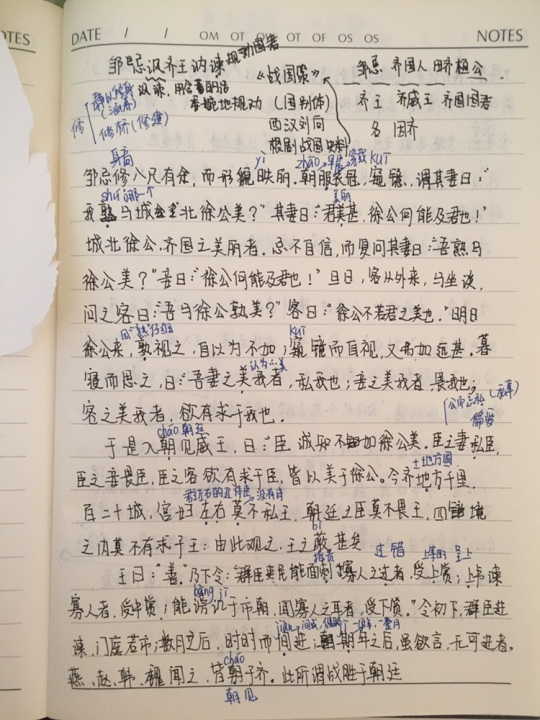 NOTES
DATE / /
OM OT OT OF OS OS
NOTES
邹忌讽齐王纳谏 规劝国君
《战国策》
邹忌 齐国人 田齐相公
讽谏,用含蓄的话
委婉地规劝
(国别体)
齐王 齐威王 齐国国君
修
西汉刘向
名 田齐
根剧战国史料
身高
yì
zhāo 早晨 穿戴 kuī
邹忌修八尺有余,而形貌昳丽,朝服衣冠,窥镜,谓其妻曰:"
shú 哪一个
美丽
我孰与城北徐公美?"其妻曰:"君美甚,徐公何能及君也!"
城北徐公,齐国之美丽者。忌不自信,而复问其妾曰:"吾孰与
徐公美?"妾曰:"徐公何能及君也!"旦日,客从外来,与坐谈,
问之客曰:"吾与徐公孰美?"客曰:"徐公不若君之美也。"明日
kuī
徐公来,孰视之,自以为不如;窥镜而自视,又弗如远甚。暮
认为…美
寝而思之,曰:"吾妻之美我者,私我也;妾之美我者,畏我也;
客之美我者,欲有求于我也。
cháo 朝廷
于是入朝见威王,曰:"臣诚知不如徐公美。臣之妻私臣,
臣之妾畏臣,臣之客欲有求于臣,皆以美于徐公。今齐地方千里,
土地方圆
百二十城,宫妇左右莫不私王,朝廷之臣莫不畏王,四境
bì
之内莫不有求于王:由此观之,王之蔽甚矣
过错
王曰:"善。"乃下令:"群臣吏民能面刺寡人之过者,受上赏;上书谏
bàng jī
寡人者,受中赏;能谤讥于市朝,闻寡人之耳者,受下赏。"令初下,群臣进
谏,门庭若市;数月之后,时时而间进,期年之后,虽欲言,无可进者。
cháo
燕、赵、韩、魏闻之,皆朝于齐。此所谓战胜于朝廷
朝见